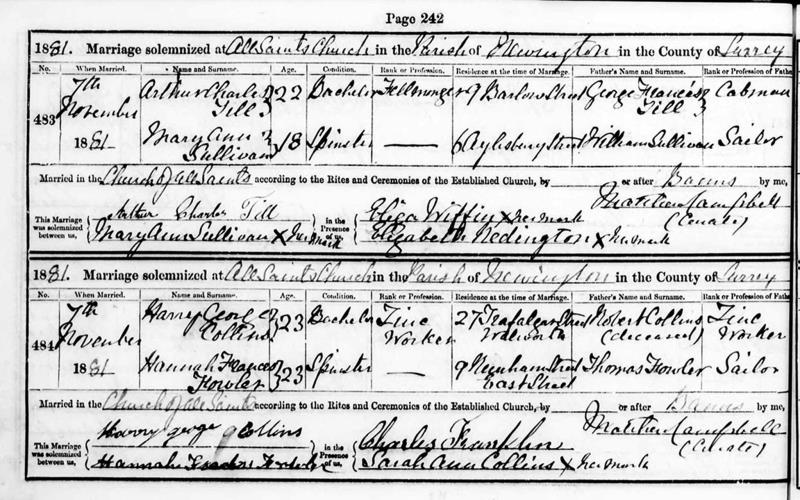 Page 242
1881. Marriage solemnized at All Saints Church in the Parish of Newington in the County of Surrey
No. When Married. Name and Surname. Age. Condition. Rank or Profession. Residence at the time of Marriage. Father's Name and Surname. Rank or Profession of Father
483 7th November 1881 Arthur Charles Till 22 Bachelor Fellmonger 9 Barlow Street George Francis Till Cabman
Mary Ann Sullivan 18 Spinster — 6 Aylesbury Street William Sullivan Sailor
Married in the Church of All Saints according to the Rites and Ceremonies of the Established Church, by or after Banns by me,
This Marriage was solemnized between us, Arthur Charles Till in the Presence of us, Eliza Wiffin X her mark Matthew Campbell
Mary Ann Sullivan X her mark Elizabeth Nedington X her mark (Curate)
1881. Marriage solemnized at All Saints Church in the Parish of Newington in the County of Surrey
No. When Married. Name and Surname. Age. Condition. Rank or Profession. Residence at the time of Marriage. Father's Name and Surname. Rank or Profession of Father
484 7th November 1881 Harry George Collins 23 Bachelor Zinc Worker 27 Trafalgar Street Walworth Robert Collins (deceased) Zinc Worker
Hannah Frances Fowler 23 Spinster — 9 Street East Street Thomas Fowler Sailor
Married in the Church of All Saints according to the Rites and Ceremonies of the Established Church, by or after Banns by me,
This Marriage was solemnized between us, Harry george Collins in the Presence of us, Charles Franklin Matthew Campbell
Hannah Frances Fowler Sarah Ann Collins X her mark (Curate)